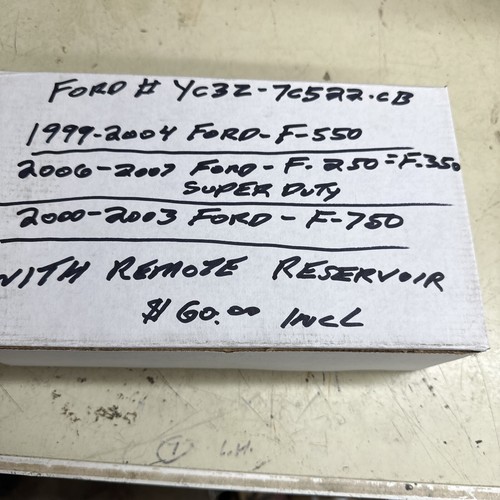 FORD # YC3Z-7C522.CB
1999-2004 FORD-F-550
2006-2007 FORD-F-250=F.350
SUPER DUTY
2000-2003 FORD - F-750
WITH REMOTE RESERVOIR
$60.00 INCL